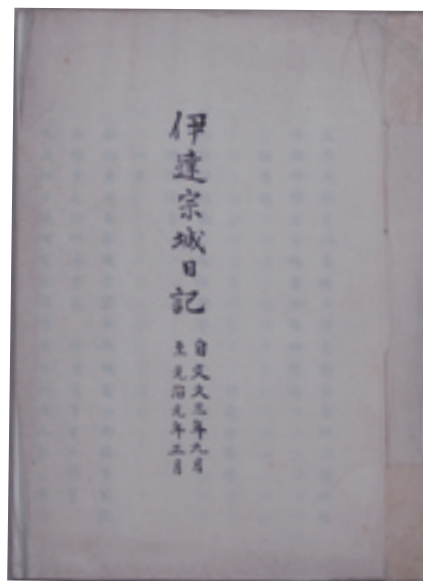 伊達宗城日記
自文久三年九月
至元治元年正月